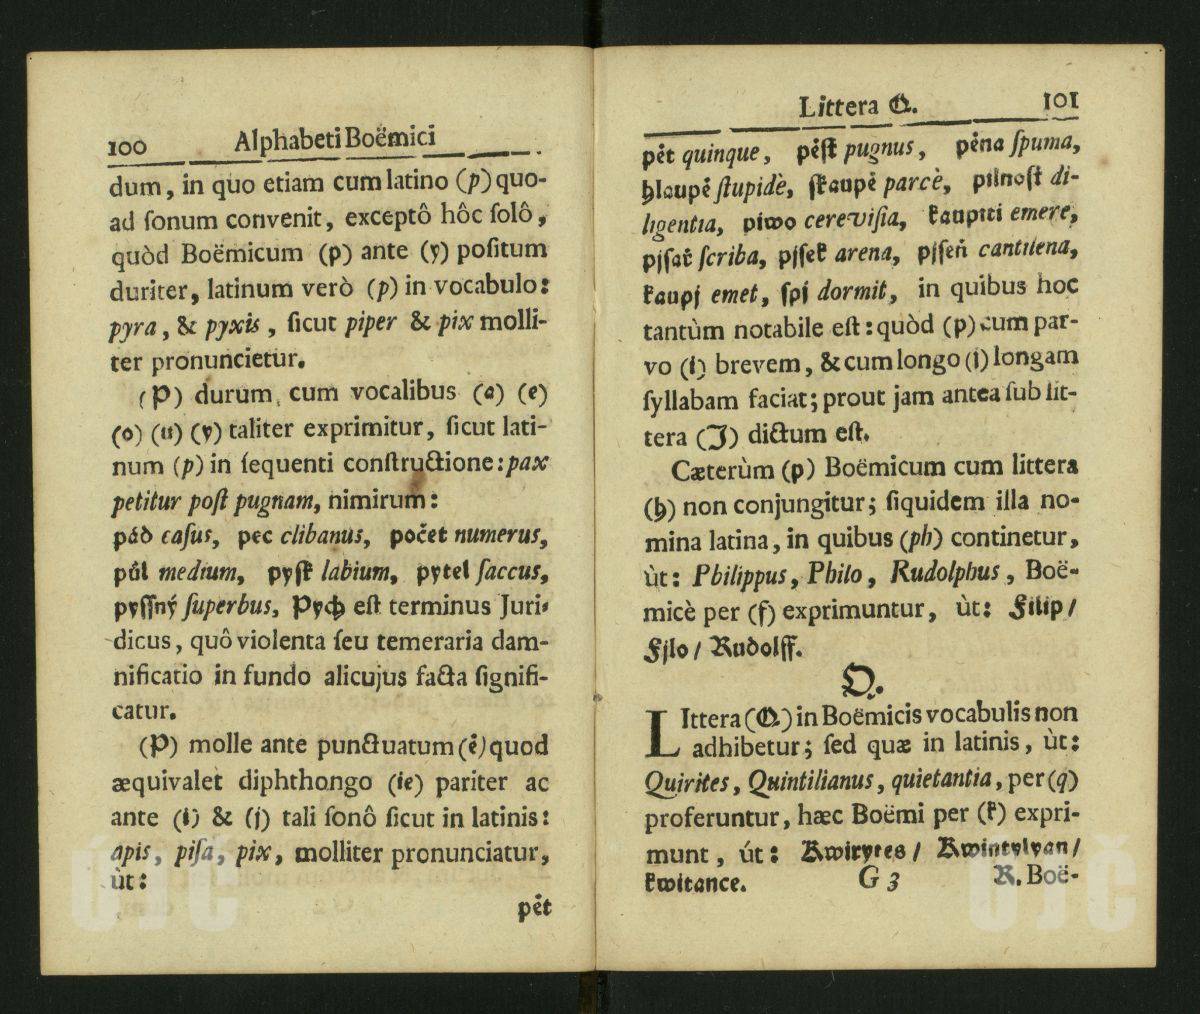 100 Alphabeti Boëmici
dum, in quo etiam cum latino (p) quo-
ad ſonum convenit, exceptô hôc ſolô,
quòd Boëmicum (p) ante (y) poſitum
duriter, latinum verò (p) in vocabulo:
pyra, & pyxis, ſicut piper & pix molli-
ter pronuncietur.
(P) durum, cum vocalibus (a) (e)
(o) (u) (y) taliter exprimitur, ſicut lati-
num (p) in ſequenti conſtructione: pax
petitur poſt pugnam, nimirum:
pád caſus, pec clibanus, počet numerus,
půl medium, pyſk labium, pytel ſaccus,
pyſſný ſuperbus, Pych eſt terminus Juri-
dicus, quô violenta ſeu temeraria dam-
nificatio in fundo alicujus facta ſignifi-
catur.
(P) molle ante punctuatum (ė) quod
æquivalet diphthongo (ie) pariter ac
ante (i) & (j) tali ſonô ſicut in latinis:
apis, piſa, pix, molliter pronunciatur,
ùt:
pėt
Littera Q. 101
pėt quinque, pėſt pugnus, pėna ſpuma,
hlaupė ſtupidè, ſkaupė parcè, pilnoſt di-
ligentia, piwo cereviſia, kaupiti emere,
pjſař ſcriba, pjſek arena, pjſeň cantilena,
kaupj emet, ſpj dormit, in quibus hoc
tantùm notabile eſt: quòd (p) cum par-
vo (i) brevem, & cum longo (j) longam
ſyllabam faciat; prout jam antea ſub lit-
tera (J) dictum eſt.
Cæterùm (p) Boëmicum cum littera
(h) non conjungitur; ſiquidem illa no-
mina latina, in quibus (ph) continetur,
ùt: Philippus, Philo, Rudolphus, Boë-
micè per (f) exprimuntur, ùt: Filip/
Fjlo/ Rudolff.
Q.
LIttera (Q.) in Boëmicis vocabulis non
adhibetur; ſed quæ in latinis, ùt:
Quirites, Quintilianus, quietantia, per (q)
proferuntur, hæc Boëmi per (k) expri-
munt, út: Kwirytes/ Kwintylyan/
kwitance. G 3 R. Boë-